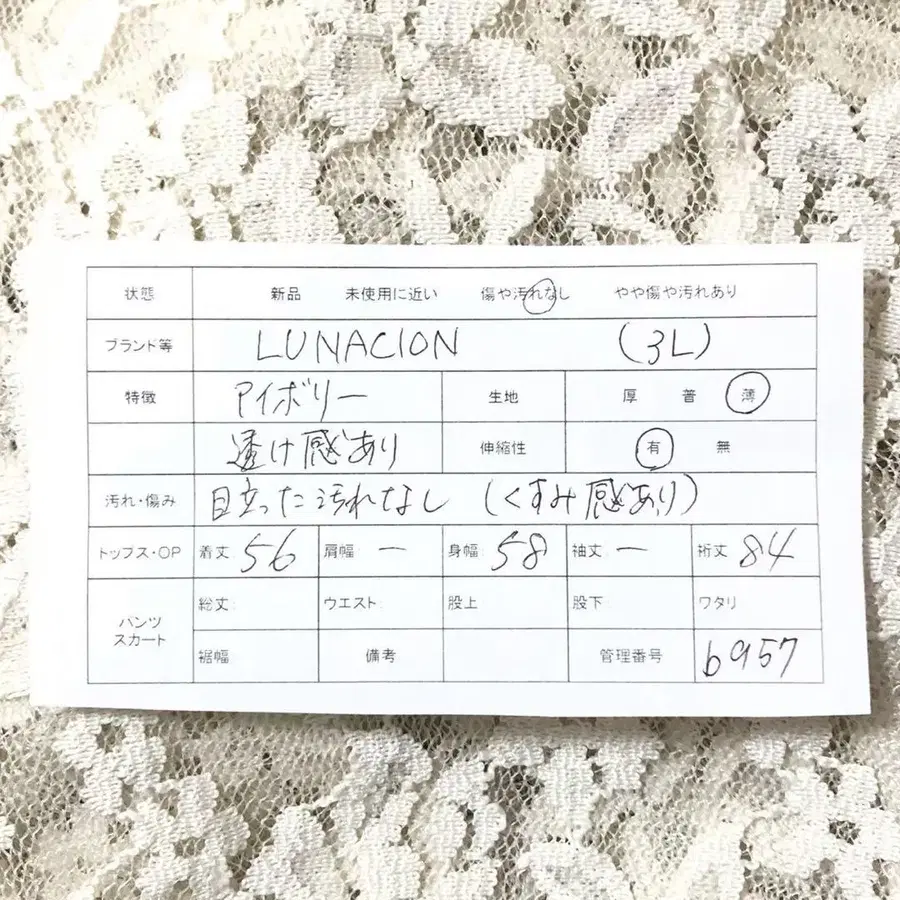 状態 新品 未使用に近い 傷や汚れなし やや傷や汚れあり
ブランド等 LUNACION (3L)
特徴 アイボリー 生地 厚 普 薄
透け感あり 伸縮性 有 無
汚れ・傷み 目立った汚れなし (くすみ感あり)
トップス・OP 着丈: 56 肩幅: ー 身幅: 58 袖丈: ー 裄丈: 84
パンツ スカート 総丈: ウエスト: 股上 股下: ワタリ
裾幅 備考 管理番号 b957